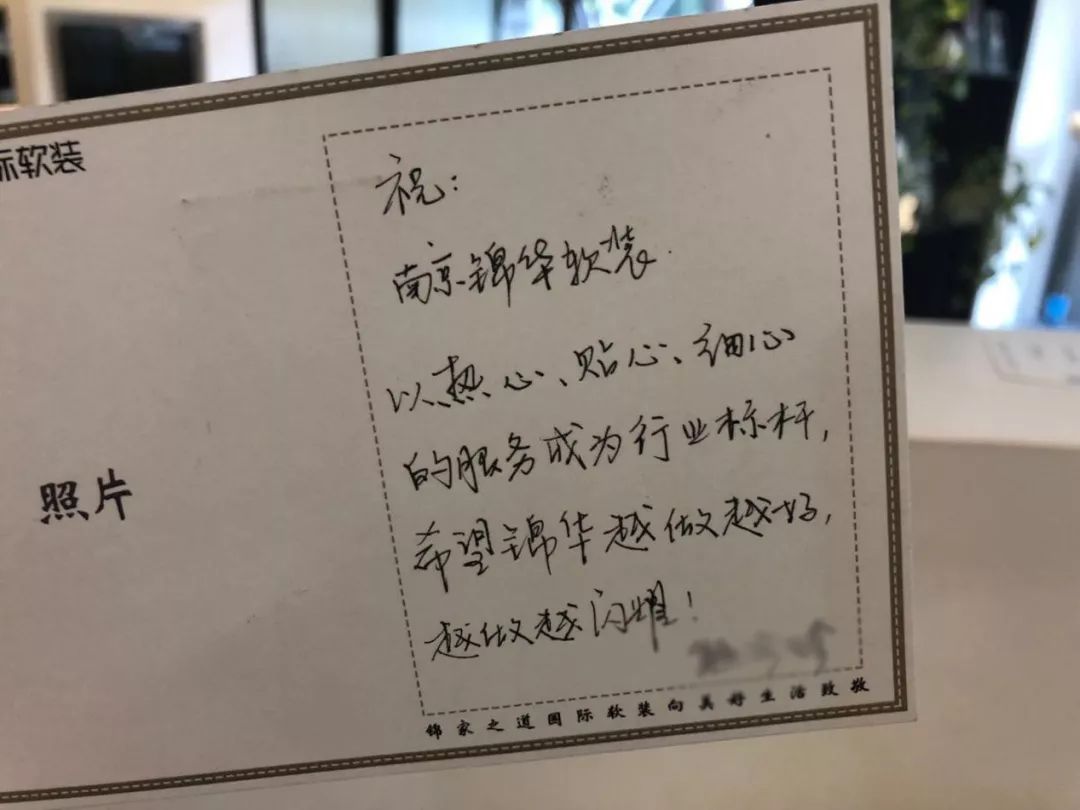 际软装
照片
祝：
南京锦华软装.
以热心、贴心、细心
的服务成为行业标杆,
希望锦华越做越好,
越做越闪耀！
锦家之道国际软装向美好生活致敬